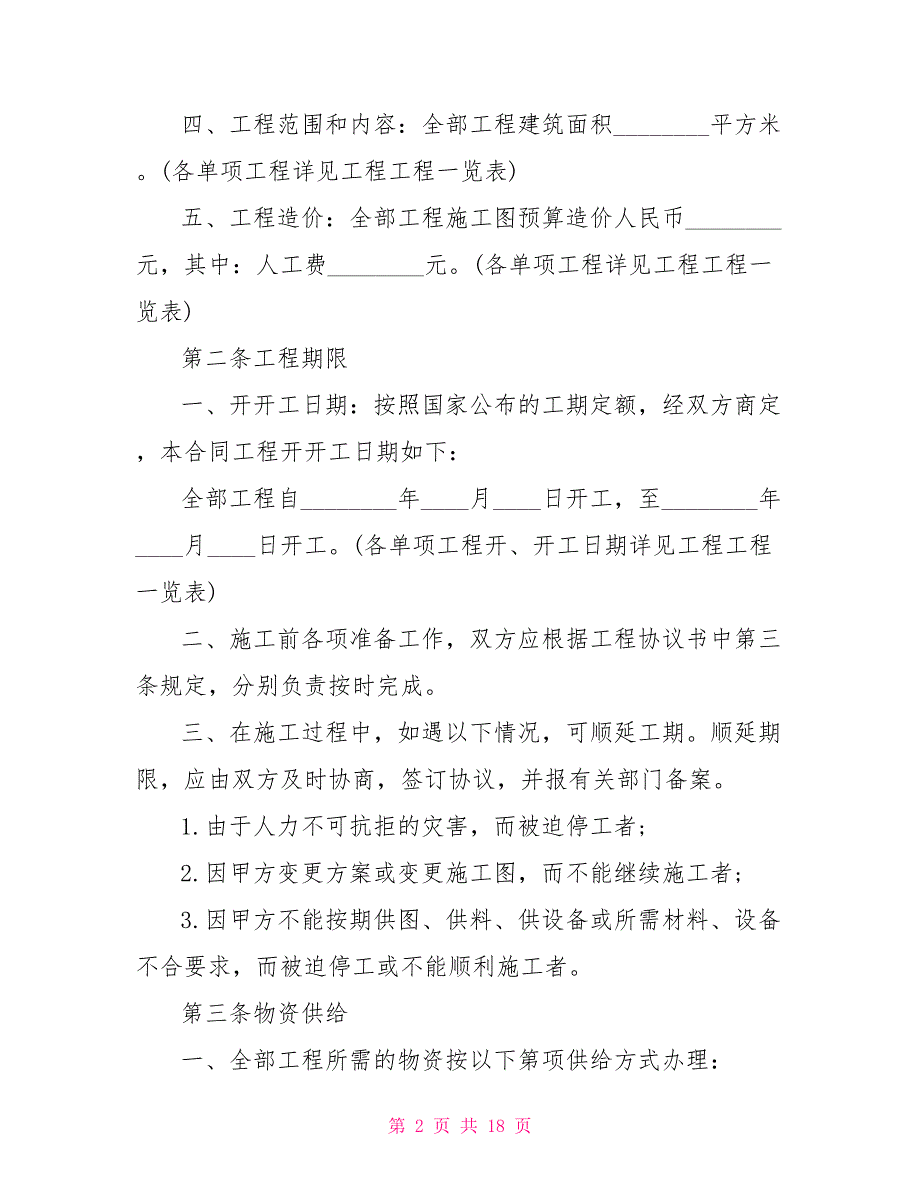 四、工程范围和内容：全部工程建筑面积________平方米
。(各单项工程详见工程工程一览表)
五、工程造价：全部工程施工图预算造价人民币________
元，其中：人工费________元。(各单项工程详见工程工程一
览表)
第二条工程期限
一、开开工日期：按照国家公布的工期定额，经双方商定
，本合同工程开开工日期如下：
全部工程自________年____月____日开工，至________年
____月____日开工。(各单项工程开、开工日期详见工程工程
一览表)
二、施工前各项准备工作，双方应根据工程协议书中第三
条规定，分别负责按时完成。
三、在施工过程中，如遇以下情况，可顺延工期。顺延期
限，应由双方及时协商，签订协议，并报有关部门备案。
1.由于人力不可抗拒的灾害，而被迫停工者;
2.因甲方变更方案或变更施工图，而不能继续施工者;
3.因甲方不能按期供图、供料、供设备或所需材料、设备
不合要求，而被迫停工或不能顺利施工者。
第三条物资供给
一、全部工程所需的物资按以下第项供给方式办理：
第 2 页 共 18 页